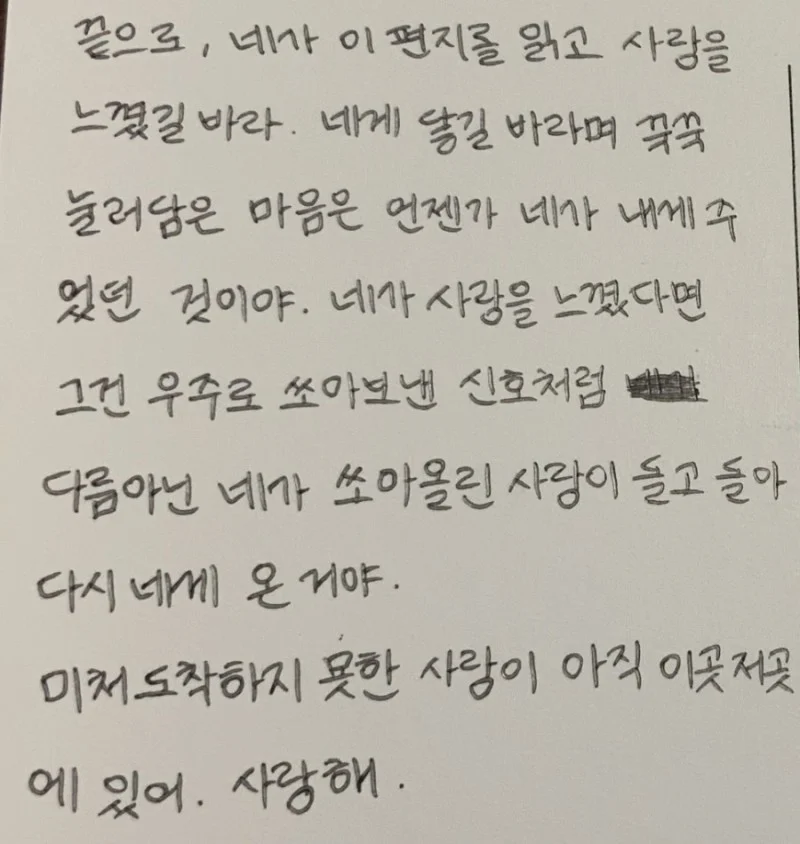 끝으로, 네가 이 편지를 읽고 사랑을
느꼈길 바라. 네게 닿길 바라며 꾹꾹
눌러담은 마음은 언젠가 네가 내게 주
었던 것이야. 네가 사랑을 느꼈다면
그건 우주로 쏘아보낸 신호처럼
다름아닌 네가 쏘아올린 사랑이 돌고 돌아
다시 네게 온 거야.
미처 도착하지 못한 사랑이 아직 이곳저곳
에 있어. 사랑해.